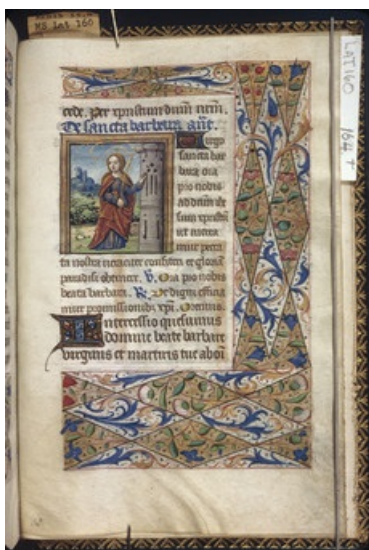 MS Lat 160
LAT 160 164 r
cede. Per xpristum dnum nrm.
De sancta barbara ane.
Virgo
sancta bar
bara ora
pro nobis
ad dnm
sum xpristu
ut
mur pecca
ta nostra confiteri et gloria
paradisi obtinere. V. Ora pro nobis
beata barbara. R. Ut digni efficia
mur promissionibus xpi. Oremus.
Intercessio quesumus
domine beate barbare
virginis et martiris tue aboi